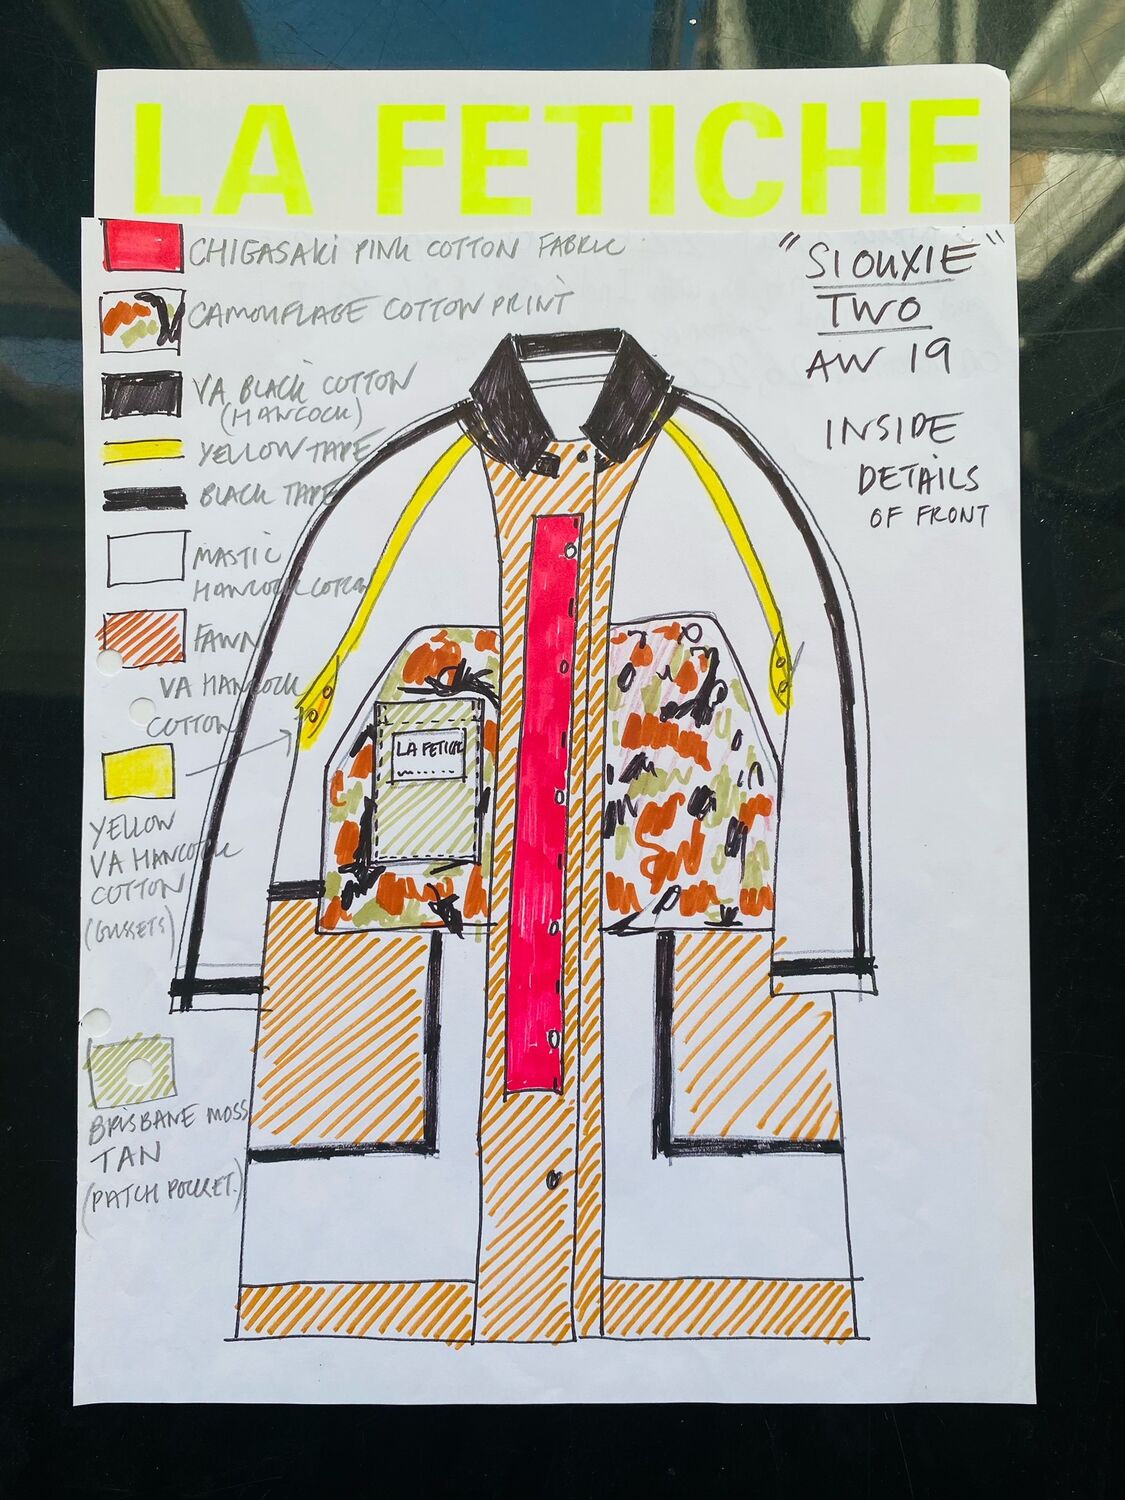 LA FETICHE
CHIGASAKI PINK COTTON FABRIC
CAMOUFLAGE COTTON PRINT
VA BLACK COTTON
(HANCOCK)
YELLOW TAPE
BLACK TAPE
MASTIC
HANCOCK COTTON
FAWN
VA HANCOCK
COTTON
YELLOW
VA HANCOCK
COTTON
(GUSSETS)
BRISBANE MOSS
TAN
(PATCH POCKET.)
"SIOUXIE"
TWO
AW 19
INSIDE
DETAILS
OF FRONT
LA FETICHE